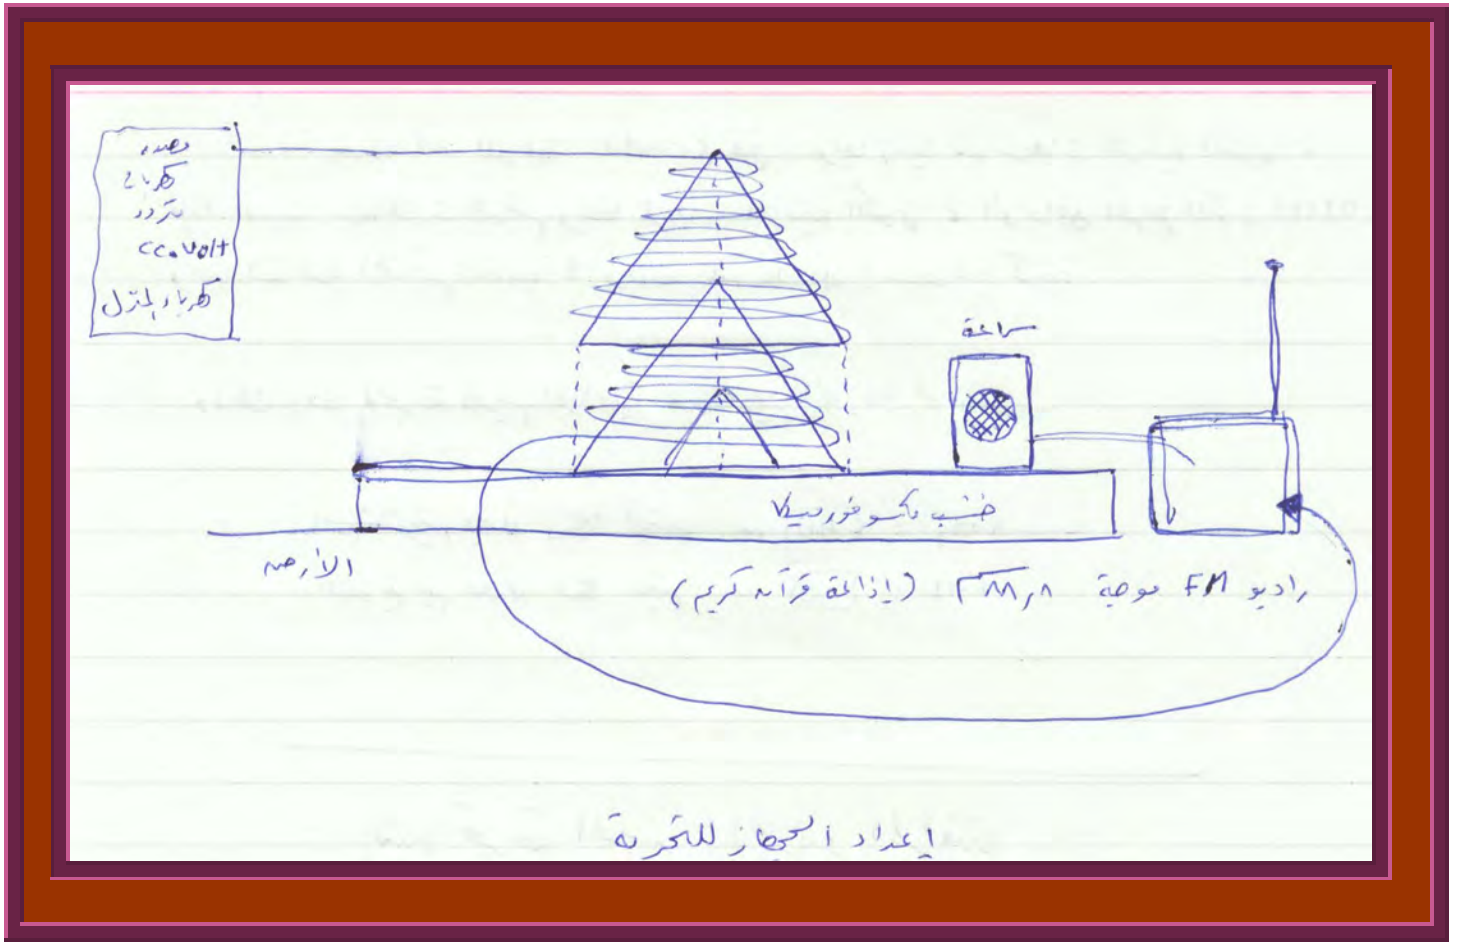 مصدر
كهرباء
تردد
٢٢٠ Volt
كهرباء المنزل
سماعة
خشب مكسو فورميكا
الأرض
راديو FM موجة ٨٨,٨ (إذاعة قرآن كريم)
إعداد الجهاز للتجربة